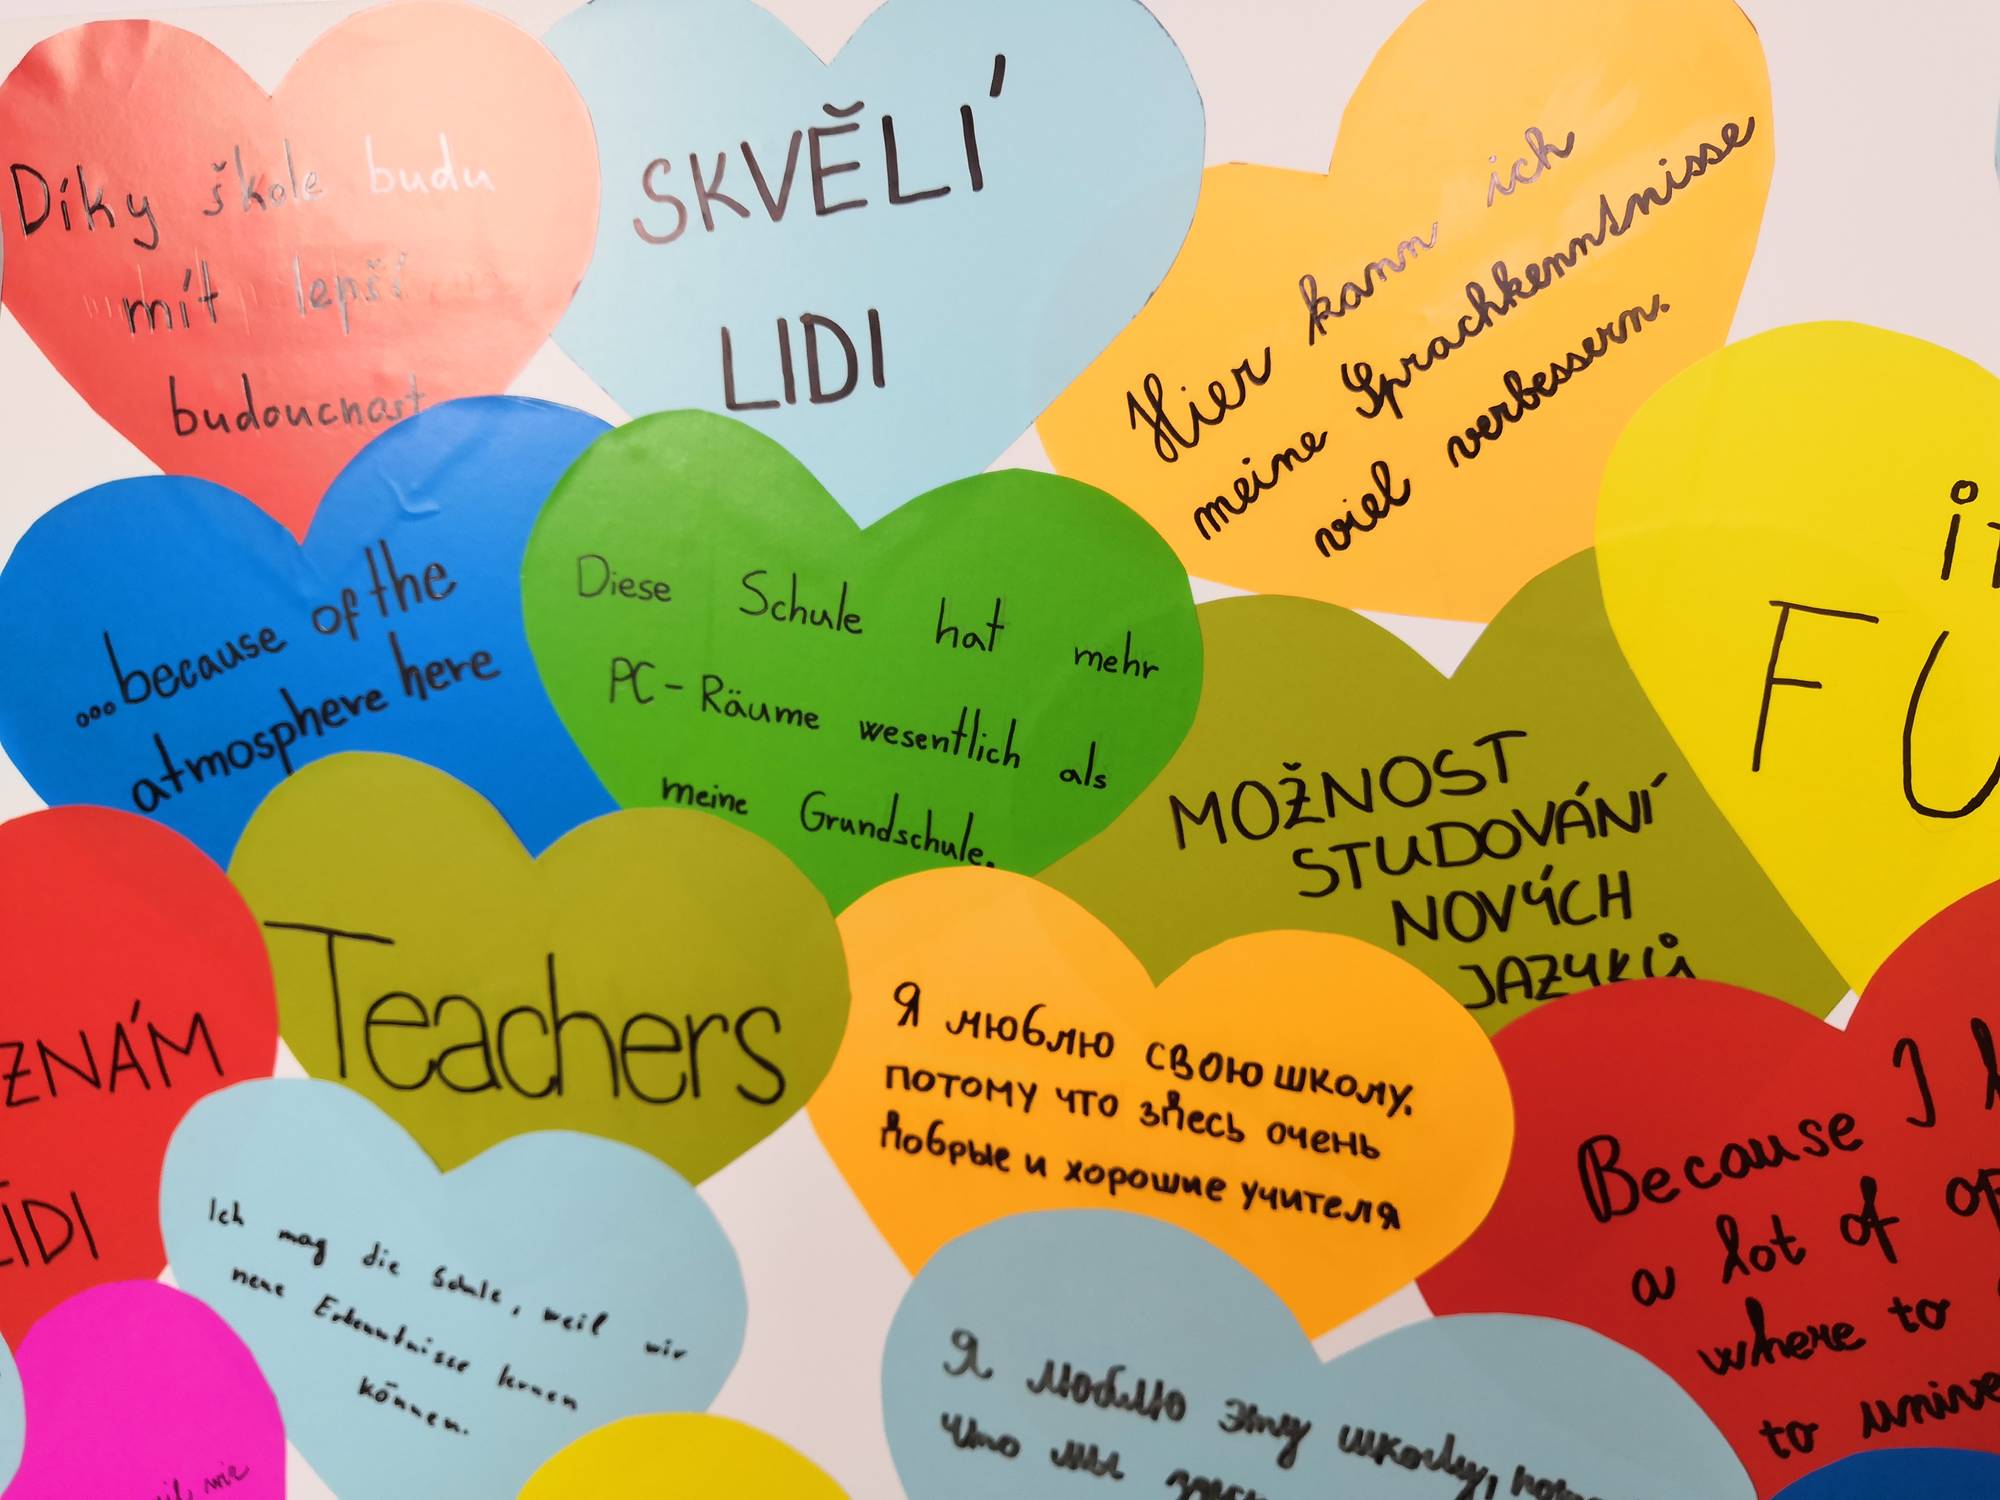 Díky škole budu
mít lepší
budoucnost
SKVĚLÍ
LIDI
Hier kann ich
meine Sprachkenntnisse
viel verbessern.
...because of the
atmosphere here
Diese Schule hat mehr
PC-Räume wesentlich als
meine Grundschule.
MOŽNOST
STUDOVÁNÍ
NOVÝCH
JAZYKŮ
FU
Teachers
Я люблю свою школу.
потому что здесь очень
добрые и хорошие учителя
ZNÁM
LIDI
Ich mag die Schule, weil wir
neue Erkenntnisse lernen
können.
Because I
a lot of
where to
to
Я люблю эту школу,
что мы
wir